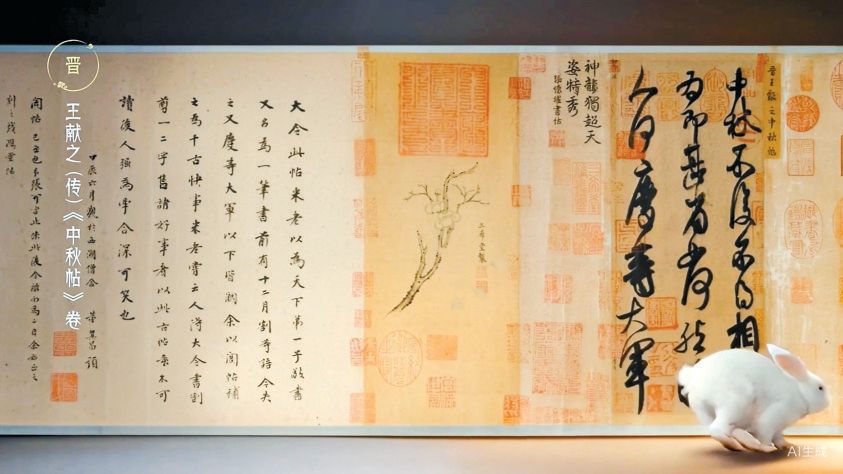 晋王献之中秋帖
中秋不復不得相
還為即甚省如何然勝
人何慶等大軍
神韻獨超天
姿特秀
三希堂製
大令此帖米老以為天下第一子敬書
又名為一筆書前有十二月割等語今失
之又慶等大軍以下皆闕余以閣帖補
之為千古快事米老嘗云人得大令書割
剪一二字售諸好事者以此古帖每不可
讀後人強為牽合深可笑也
甲辰六月觀於西湖僧舍 董其昌題
晋
王献之（传）《中秋帖》卷
AI生成